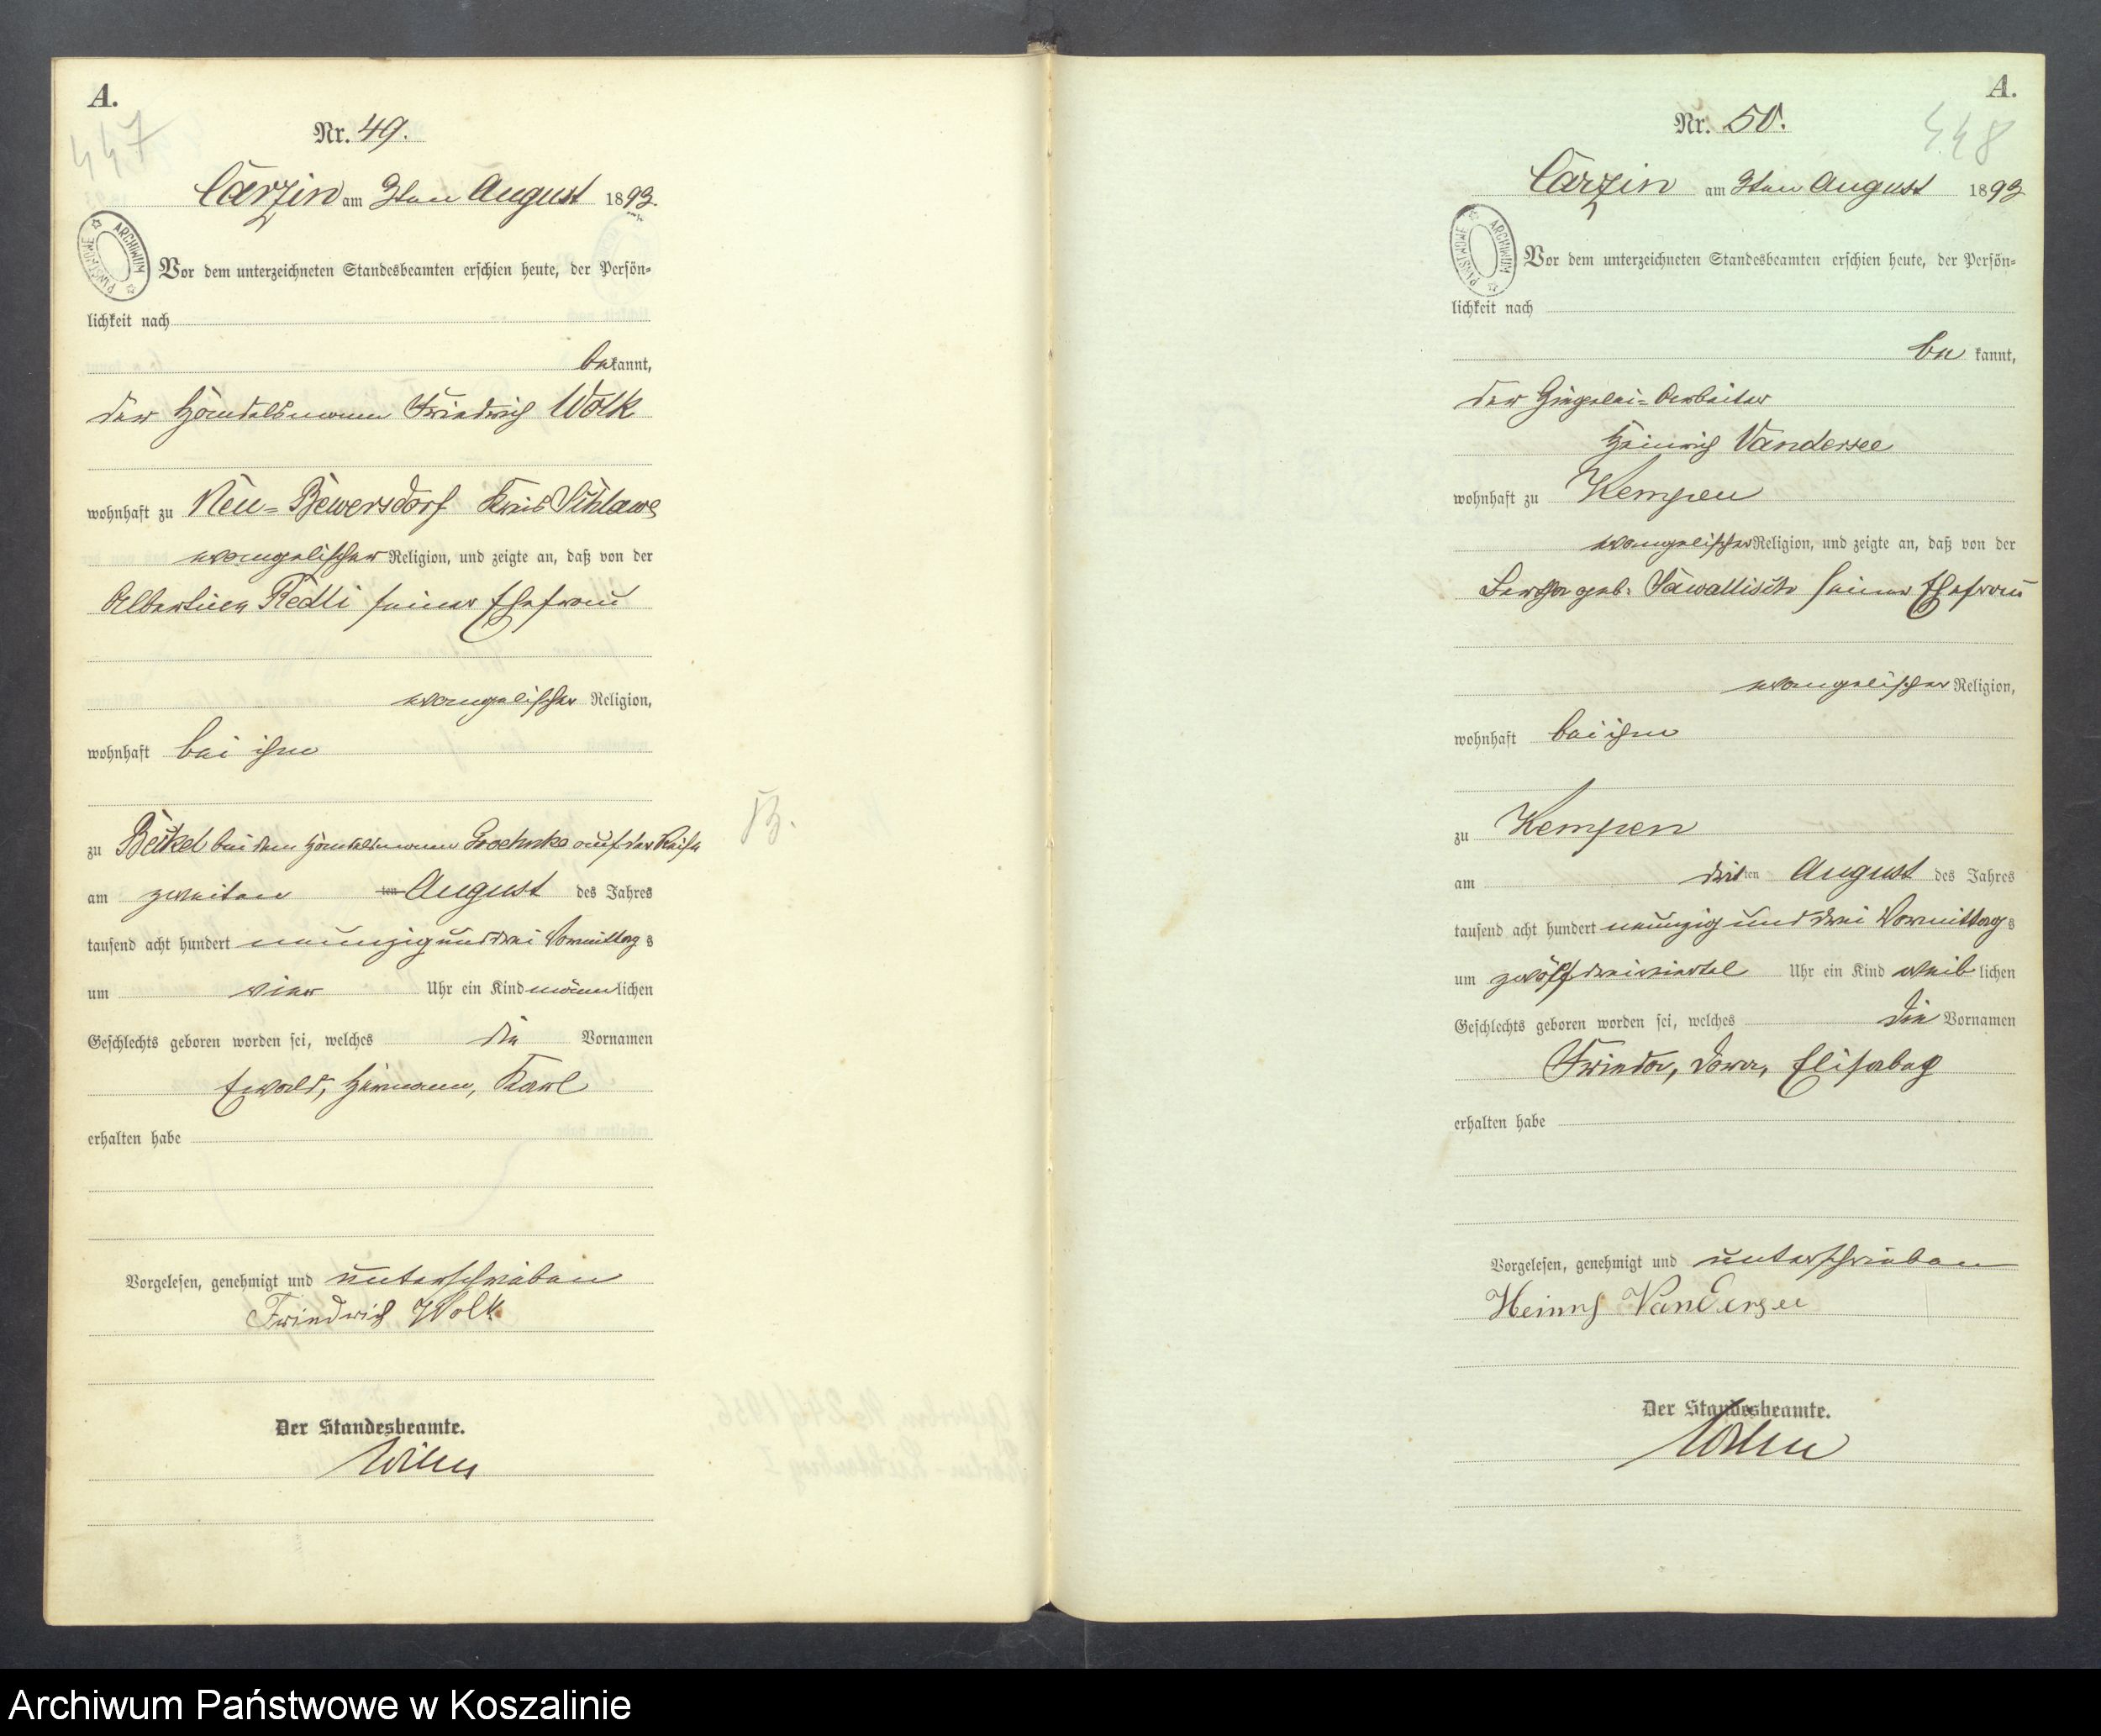 A.
447
Nr. 49.
Carzin am 3ten August 1893.
ARCHIWUM PAŃSTWOWE
Vor dem unterzeichneten Standesbeamten erschien heute, der Persön-
lichkeit nach
bekannt,
der Handelsmann Friedrich Wolk
wohnhaft zu Neu-Bewersdorf Kreis Schlawe
evangelischer Religion, und zeigte an, daß von der
Albertine Redli seiner Ehefrau
evangelischer Religion,
wohnhaft bei ihm
zu Beckel bei dem Handelsmann auf der Reise
am zweiten ten August des Jahres
tausend acht hundert neunzig und drei Vormittags
um vier Uhr ein Kind männlichen
Geschlechts geboren worden sei, welches die Vornamen
Ewald, Hermann, Karl
erhalten habe
Vorgelesen, genehmigt und unterschrieben
Friedrich Wolk
Der Standesbeamte.
B.
A.
448
Nr. 50.
Carzin am 3ten August 1893
ARCHIWUM PAŃSTWOWE
Vor dem unterzeichneten Standesbeamten erschien heute, der Persön-
lichkeit nach
be kannt,
der Ziegelei-Arbeiter
Heinrich Vandersee
wohnhaft zu Kempen
evangelischer Religion, und zeigte an, daß von der
geb. seiner Ehefrau
evangelischer Religion,
wohnhaft bei ihm
zu Kempen
am dritten August des Jahres
tausend acht hundert neunzig und drei Vormittags
um zwölf dreiviertel Uhr ein Kind weiblichen
Geschlechts geboren worden sei, welches die Vornamen
Frieda, Dora, Elisabeg
erhalten habe
Vorgelesen, genehmigt und unterschrieben
Heinrich Vandersee
Der Standesbeamte.
Archiwum Państwowe w Koszalinie